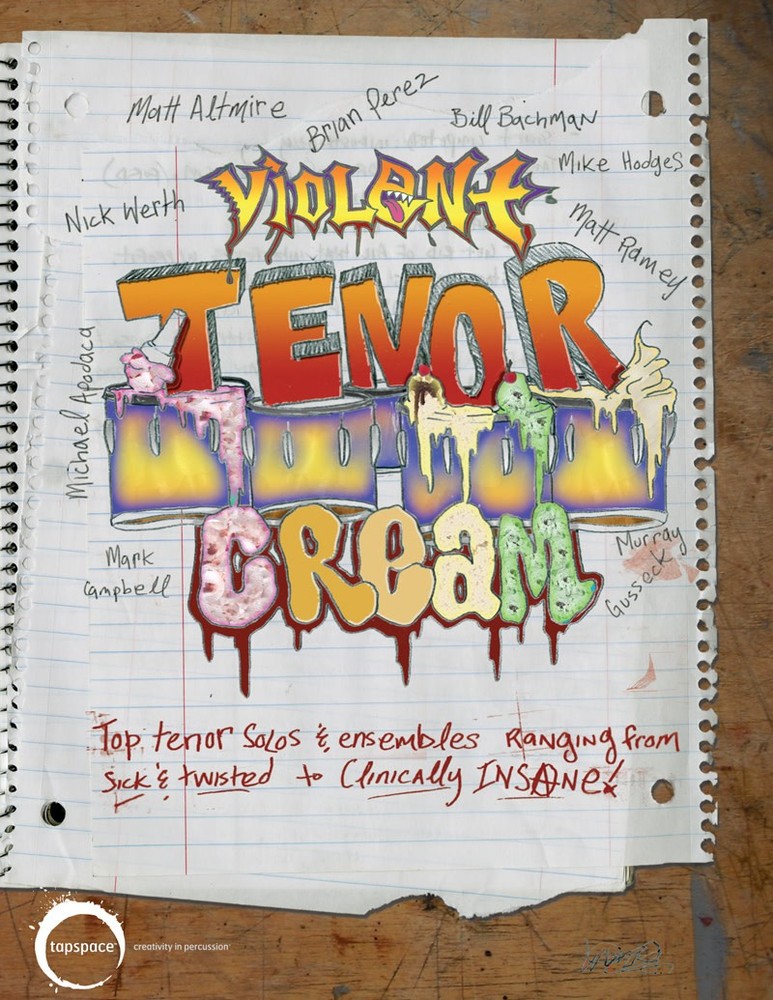 Matt Altmire
Brian Perez
Bill Bachman
Mike Hodges
Nick Werth
Matt Ramey
Michael Apodaca
Violent
TENOR
CReaM
Mark
Campbell
Murray
Gusseck
Top tenor Solos & ensembles Ranging from
Sick & twisted to Clinically INSANe!
tapspace™
creativity in percussion™